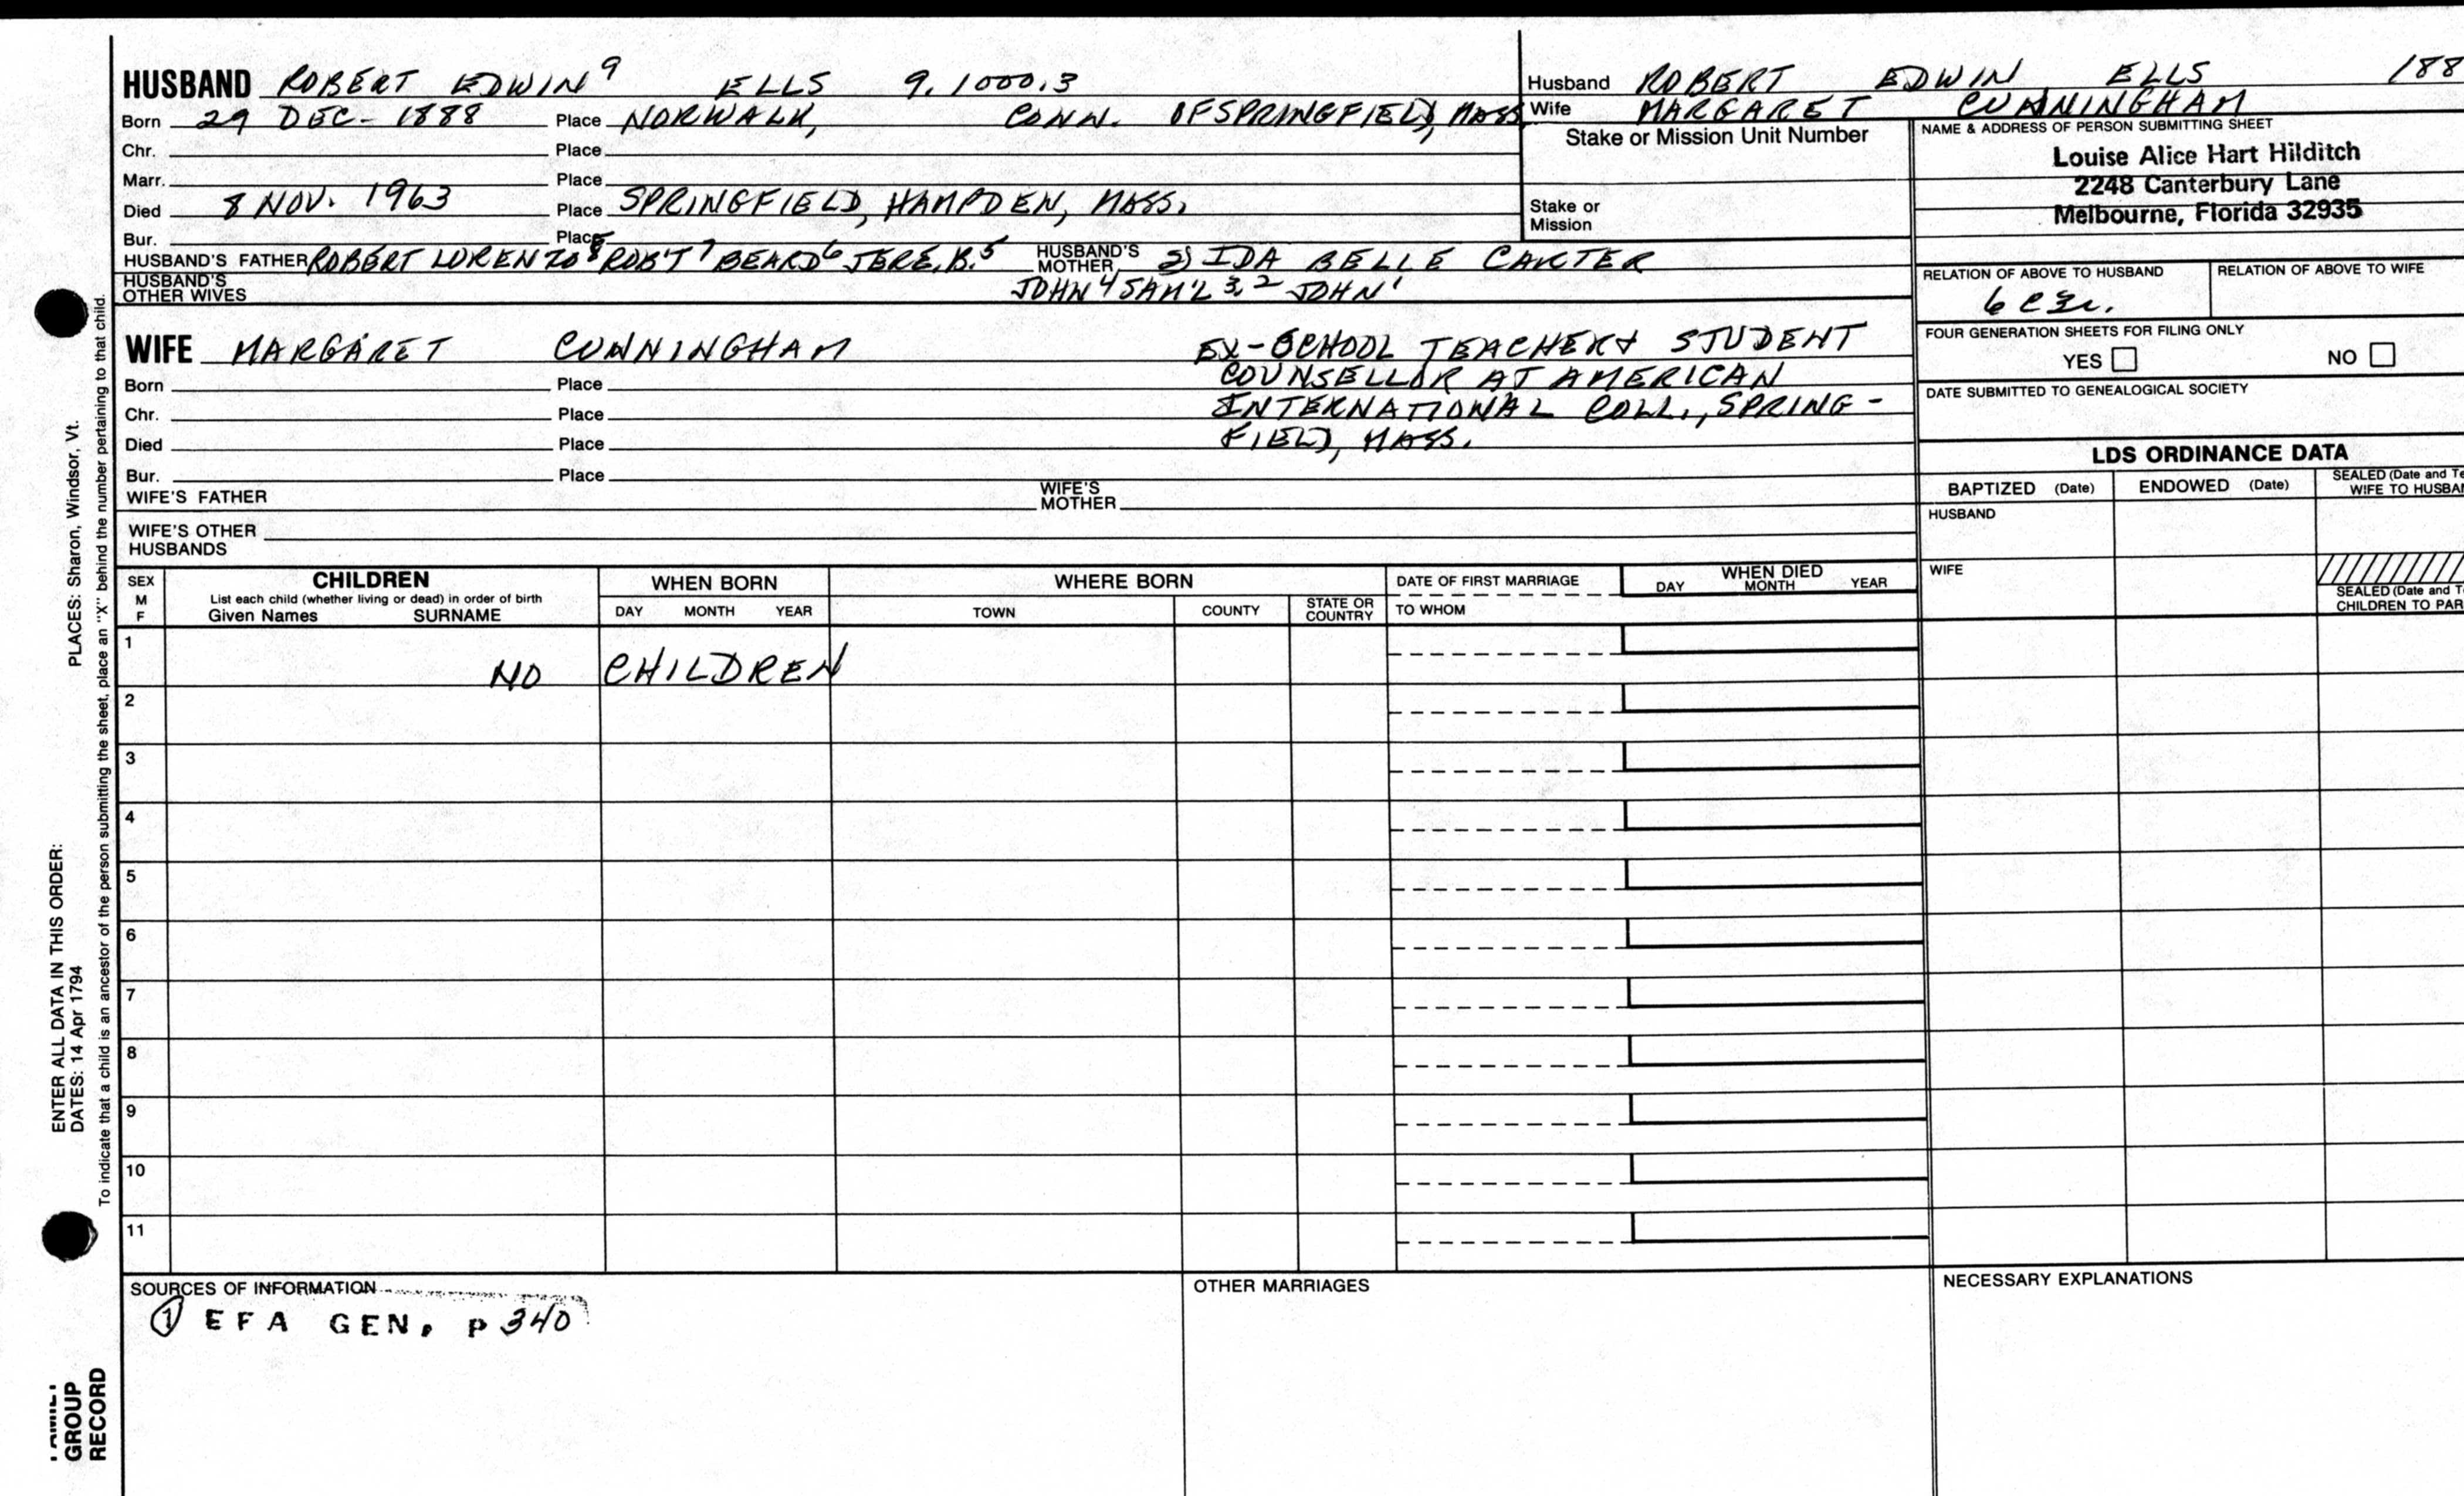 HUSBAND ROBERT EDWIN⁹ ELLS 9.1000.3
Born 29 DEC- 1888 Place NORWALK, CONN. OF SPRINGFIELD, MASS.
Chr. Place
Marr. Place
Died 8 NOV. 1963 Place SPRINGFIELD, HAMPDEN, MASS.
Bur. Place
HUSBAND'S FATHER ROBERT LORENZO⁸ ROB'T⁷ BEARD⁶ JERE. B.⁵ HUSBAND'S MOTHER 2) IDA BELLE CARTER
HUSBAND'S OTHER WIVES JOHN⁴ SAM'L³,² JOHN¹
WIFE MARGARET CUNNINGHAM EX-SCHOOL TEACHER & STUDENT
COUNSELLOR AT AMERICAN
INTERNATIONAL COLL., SPRING-
FIELD, MASS.
Born Place
Chr. Place
Died Place
Bur. Place
WIFE'S FATHER WIFE'S MOTHER
WIFE'S OTHER HUSBANDS
Husband ROBERT EDWIN ELLS 188
Wife MARGARET CUNNINGHAM
Stake or Mission Unit Number
Stake or Mission
NAME & ADDRESS OF PERSON SUBMITTING SHEET
Louise Alice Hart Hilditch
2248 Canterbury Lane
Melbourne, Florida 32935
RELATION OF ABOVE TO HUSBAND RELATION OF ABOVE TO WIFE
FOUR GENERATION SHEETS FOR FILING ONLY
YES NO
DATE SUBMITTED TO GENEALOGICAL SOCIETY
LDS ORDINANCE DATA
BAPTIZED (Date) ENDOWED (Date) SEALED (Date and Te
WIFE TO HUSBAN
HUSBAND
WIFE
SEALED (Date and T
CHILDREN TO PAR
SEX M F
CHILDREN
List each child (whether living or dead) in order of birth
Given Names SURNAME
WHEN BORN
DAY MONTH YEAR
WHERE BORN
TOWN COUNTY STATE OR COUNTRY
DATE OF FIRST MARRIAGE
TO WHOM
WHEN DIED
DAY MONTH YEAR
1 NO CHILDREN
2
3
4
5
6
7
8
9
10
11
SOURCES OF INFORMATION
① EFA GEN. P 340
OTHER MARRIAGES
NECESSARY EXPLANATIONS
ENTER ALL DATA IN THIS ORDER:
DATES: 14 Apr 1794 PLACES: Sharon, Windsor, Vt.
To indicate that a child is an ancestor of the person submitting the sheet, place an "X" behind the number pertaining to that child.
GROUP
RECORD